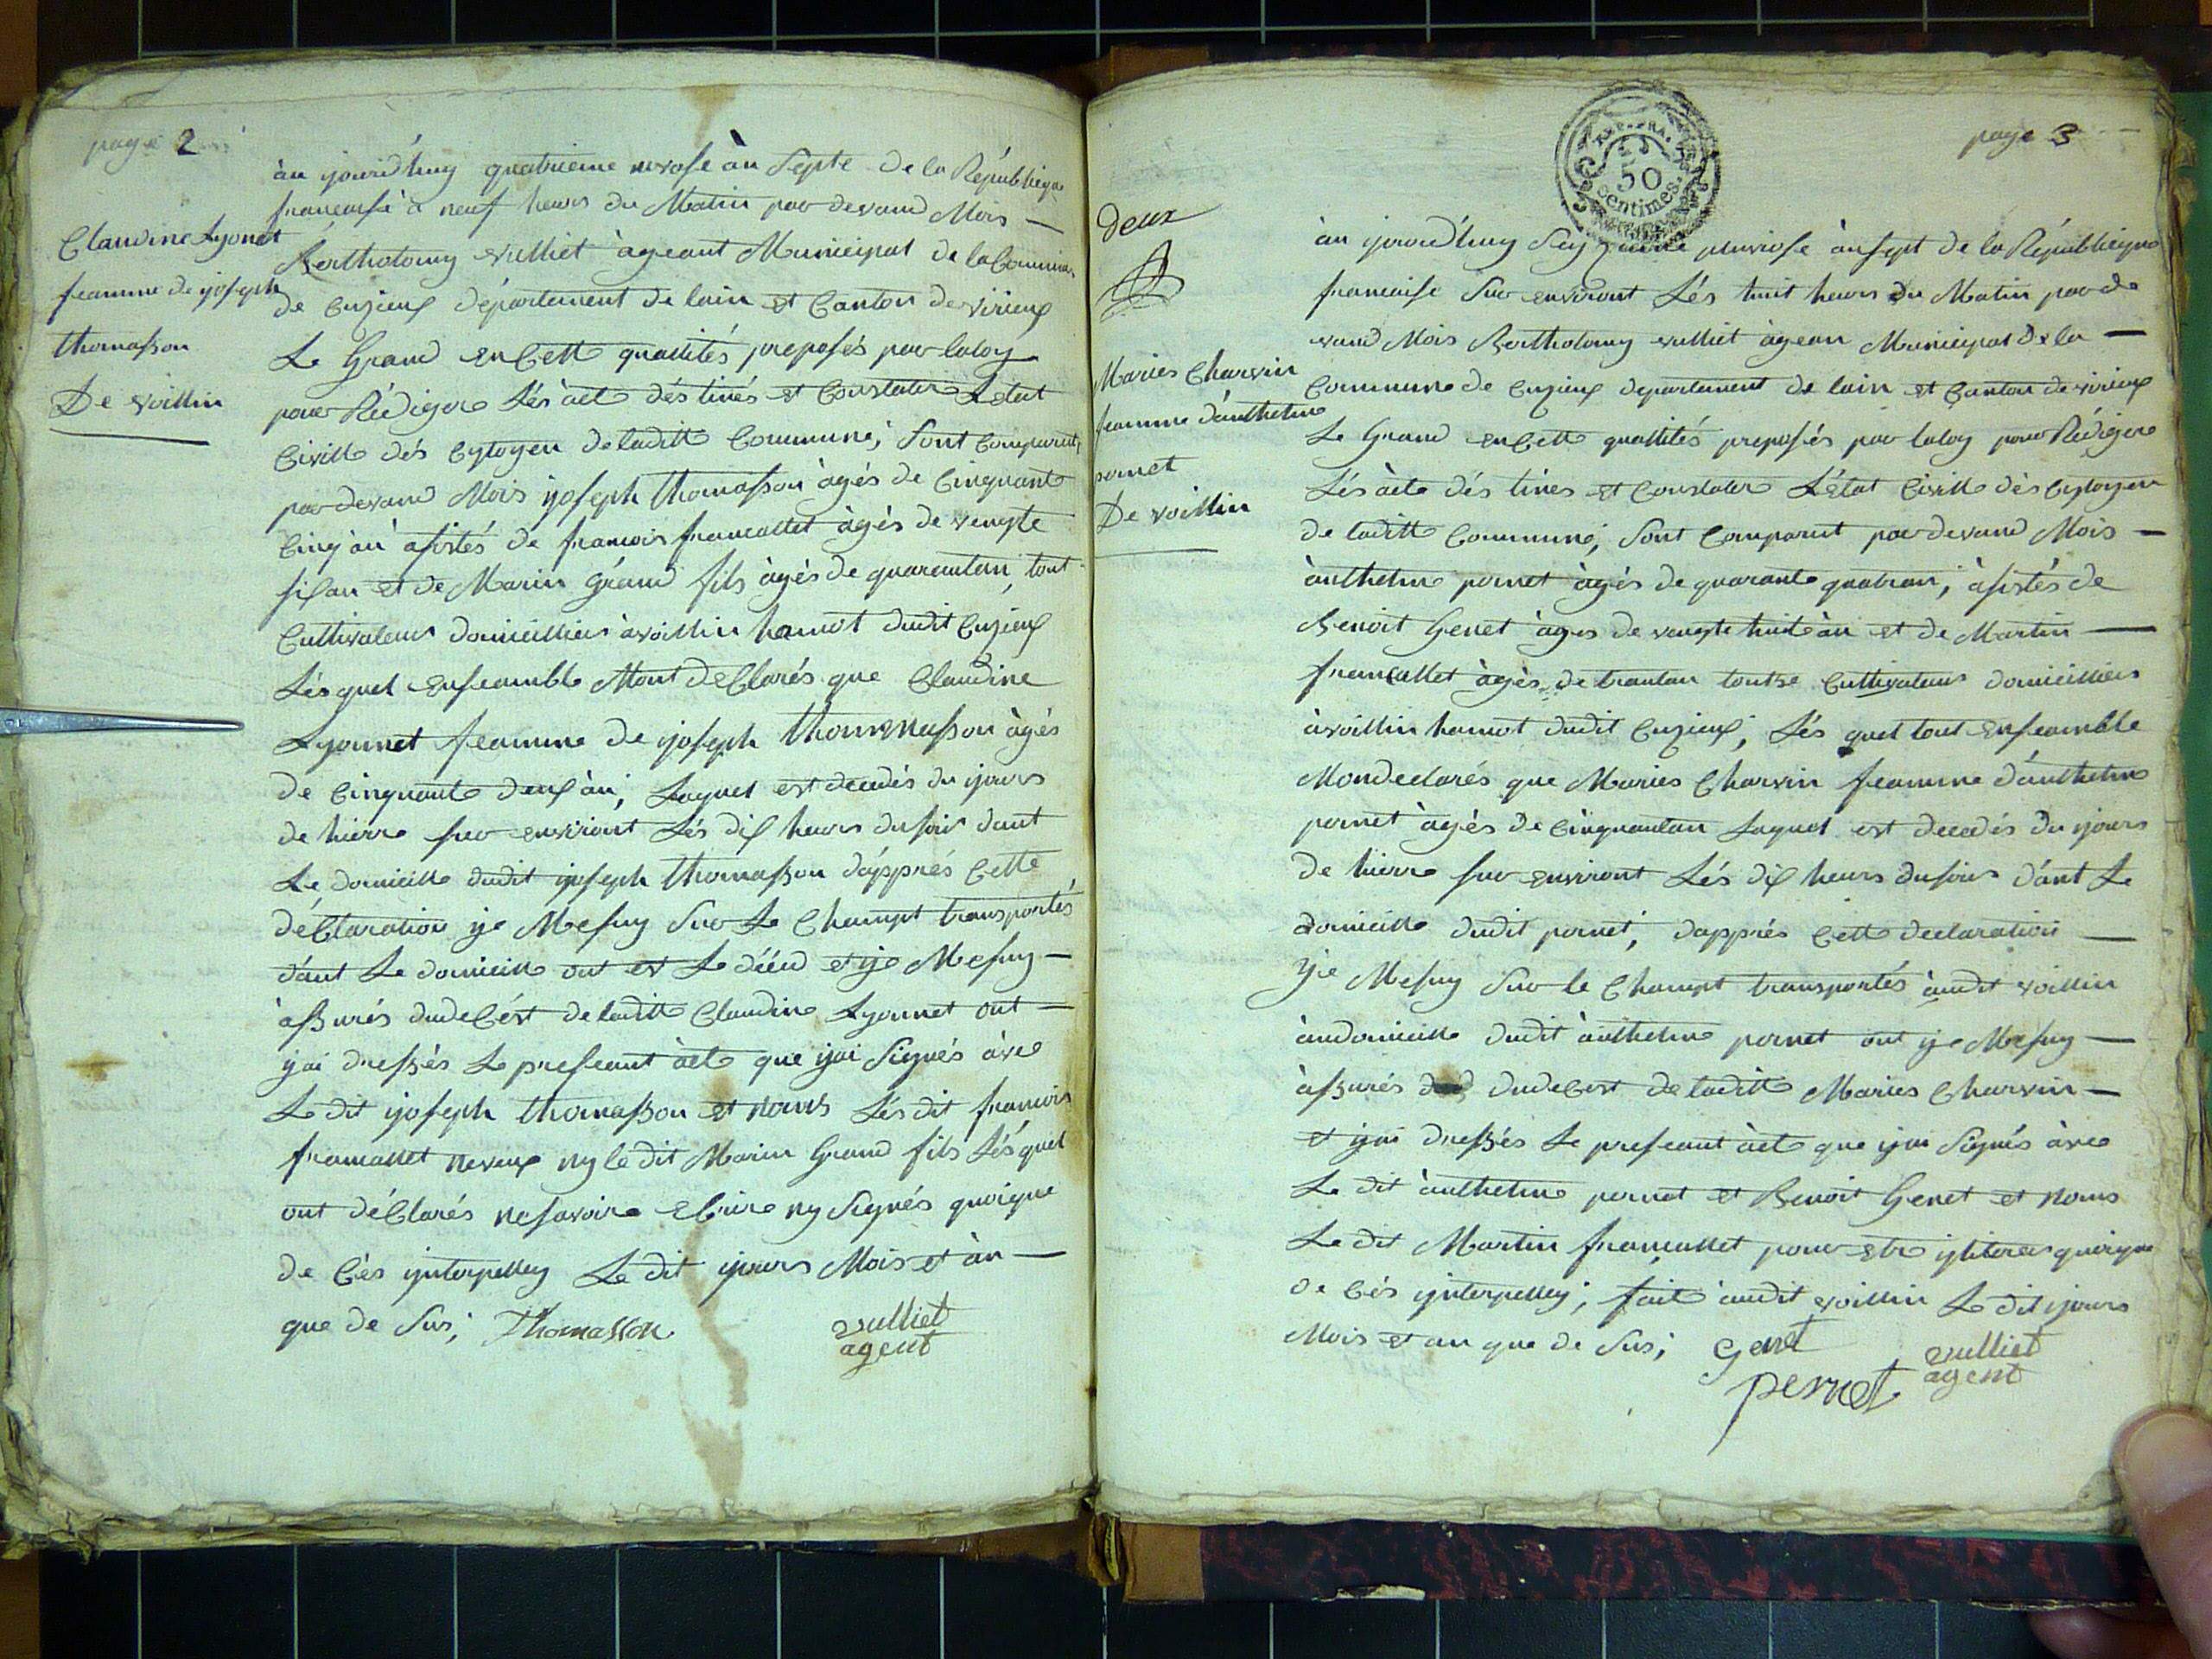 page 2
Claudine Lyonet
feamme de yoseph
thomasson
De voillin
àu yourd'huy quatrieme nivose àn Septe de la République
francaise à neuf heurs du Matin par devand Mois
Bertholomy vulliet àgeant Municipal de la Commune
de Cuzieux département de lain et Canton de virieux
Le Grand en Cette quallités preposés par laloy
pour Rédigere Lés àcte déstinés et Constater Letat
Civille dés Cytoyen de laditte Commune, Sont Comparut
par devand Mois yoseph thomasson àgés de Cinquante
Cinq àn àsistés de francois francallet àgés de vengte
six an et de Marin Grand fils àgés de quarantan, tout
Cultivateur domicilliés àvoillin hamot dudit Cuzieux
Lésquel enseamble Mont déClarés que Claudine
Lyonnet feamme de yoseph thommasson àgés
de Cinquante deux àn, Laquel est decedés du yours
de hierre sur environt Lés dix heurs dusoir dant
Le domicille dudit yoseph thomasson dàpprés Cette
déClaration ye Mesuy Sur Le Champt transportés
dànt Le domicille out est Le décd et ye Mesuy
àssurés dudeCést de laditte Claudine Lyonnet out
yai dressés Le preseant àcte que yai Signés àvec
Le dit yoseph thomasson et nonts Lés dit francois
francallet neveux ny le dit Marin Grand fils Lésquel
ont déClarés nesavoire eCrire ny Signés quoique
de Cés ynterpelley Le dit yours Mois et àn
que de Sus, Thomasson
vulliet
agent
page 3
REP. FRA.
50
centimes.
deux
Maries Charvin
feamme dànthelme
pernet
De voillin
àu yourd'huy pluviose àn sept de la République
francaise Sur environt Lés huit heurs du Matin par de
vand Mois Bertholomy vulliet àgean Municipal de la
Commune de Cuzieux departement de lain et Canton de virieux
Le Grand en Cette quallités preposés par laloy pour Rédigere
Lés àcte dés tines et Constater L'état Civille dés Cytoyen
de laditte Commune, Sont Comparut par devand Mois
ànthelme pernet àgés de quarante quatran, àsistés de
Benoit Genet àgés de vengte huit àn et de Martin
francallet àgés de trantan toutse Cultivateur domicilliés
àvoillin hamot dudit Cuzieux, Lés quel tout enseamble
Mondeclarés que Maries Charvin feamme dànthelme
pernet àgés de Cinquantan Laquel est decedés du yours
de hierre sur environt Lés dix heurs dusoir dànt Le
domicille dudit pernet, dapprés Cette declaration
ye Mesuy Sur le Champt transportés àudit voillin
àudomicille dudit ànthelme pernet out ye Mesuy
àssurés dudeCest de laditte Maries Charvin
et yai dressés Le preseant àcte que yai Signés àvec
Le dit ànthelme pernet et Benoit Genet et nonts
Le dit Martin francallet pour etre yliterer quoique
de Cés ynterpelley, fait àudit voillin Le dit yours
Mois et an que de Sus, Genet
pernet
vulliet
agent